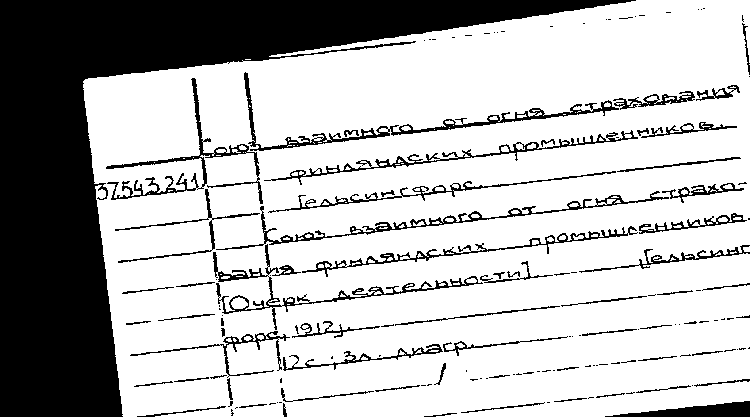 Союз взаимного от огня страхования
37.543.241
финляндских промышленников.
Гельсингфорс.
Союз взаимного от огня страхо-
вания финляндских промышленников.
[Очерк деятельности] [Гельсинг
форс, 1912].
12 с.; 3 л. диагр.